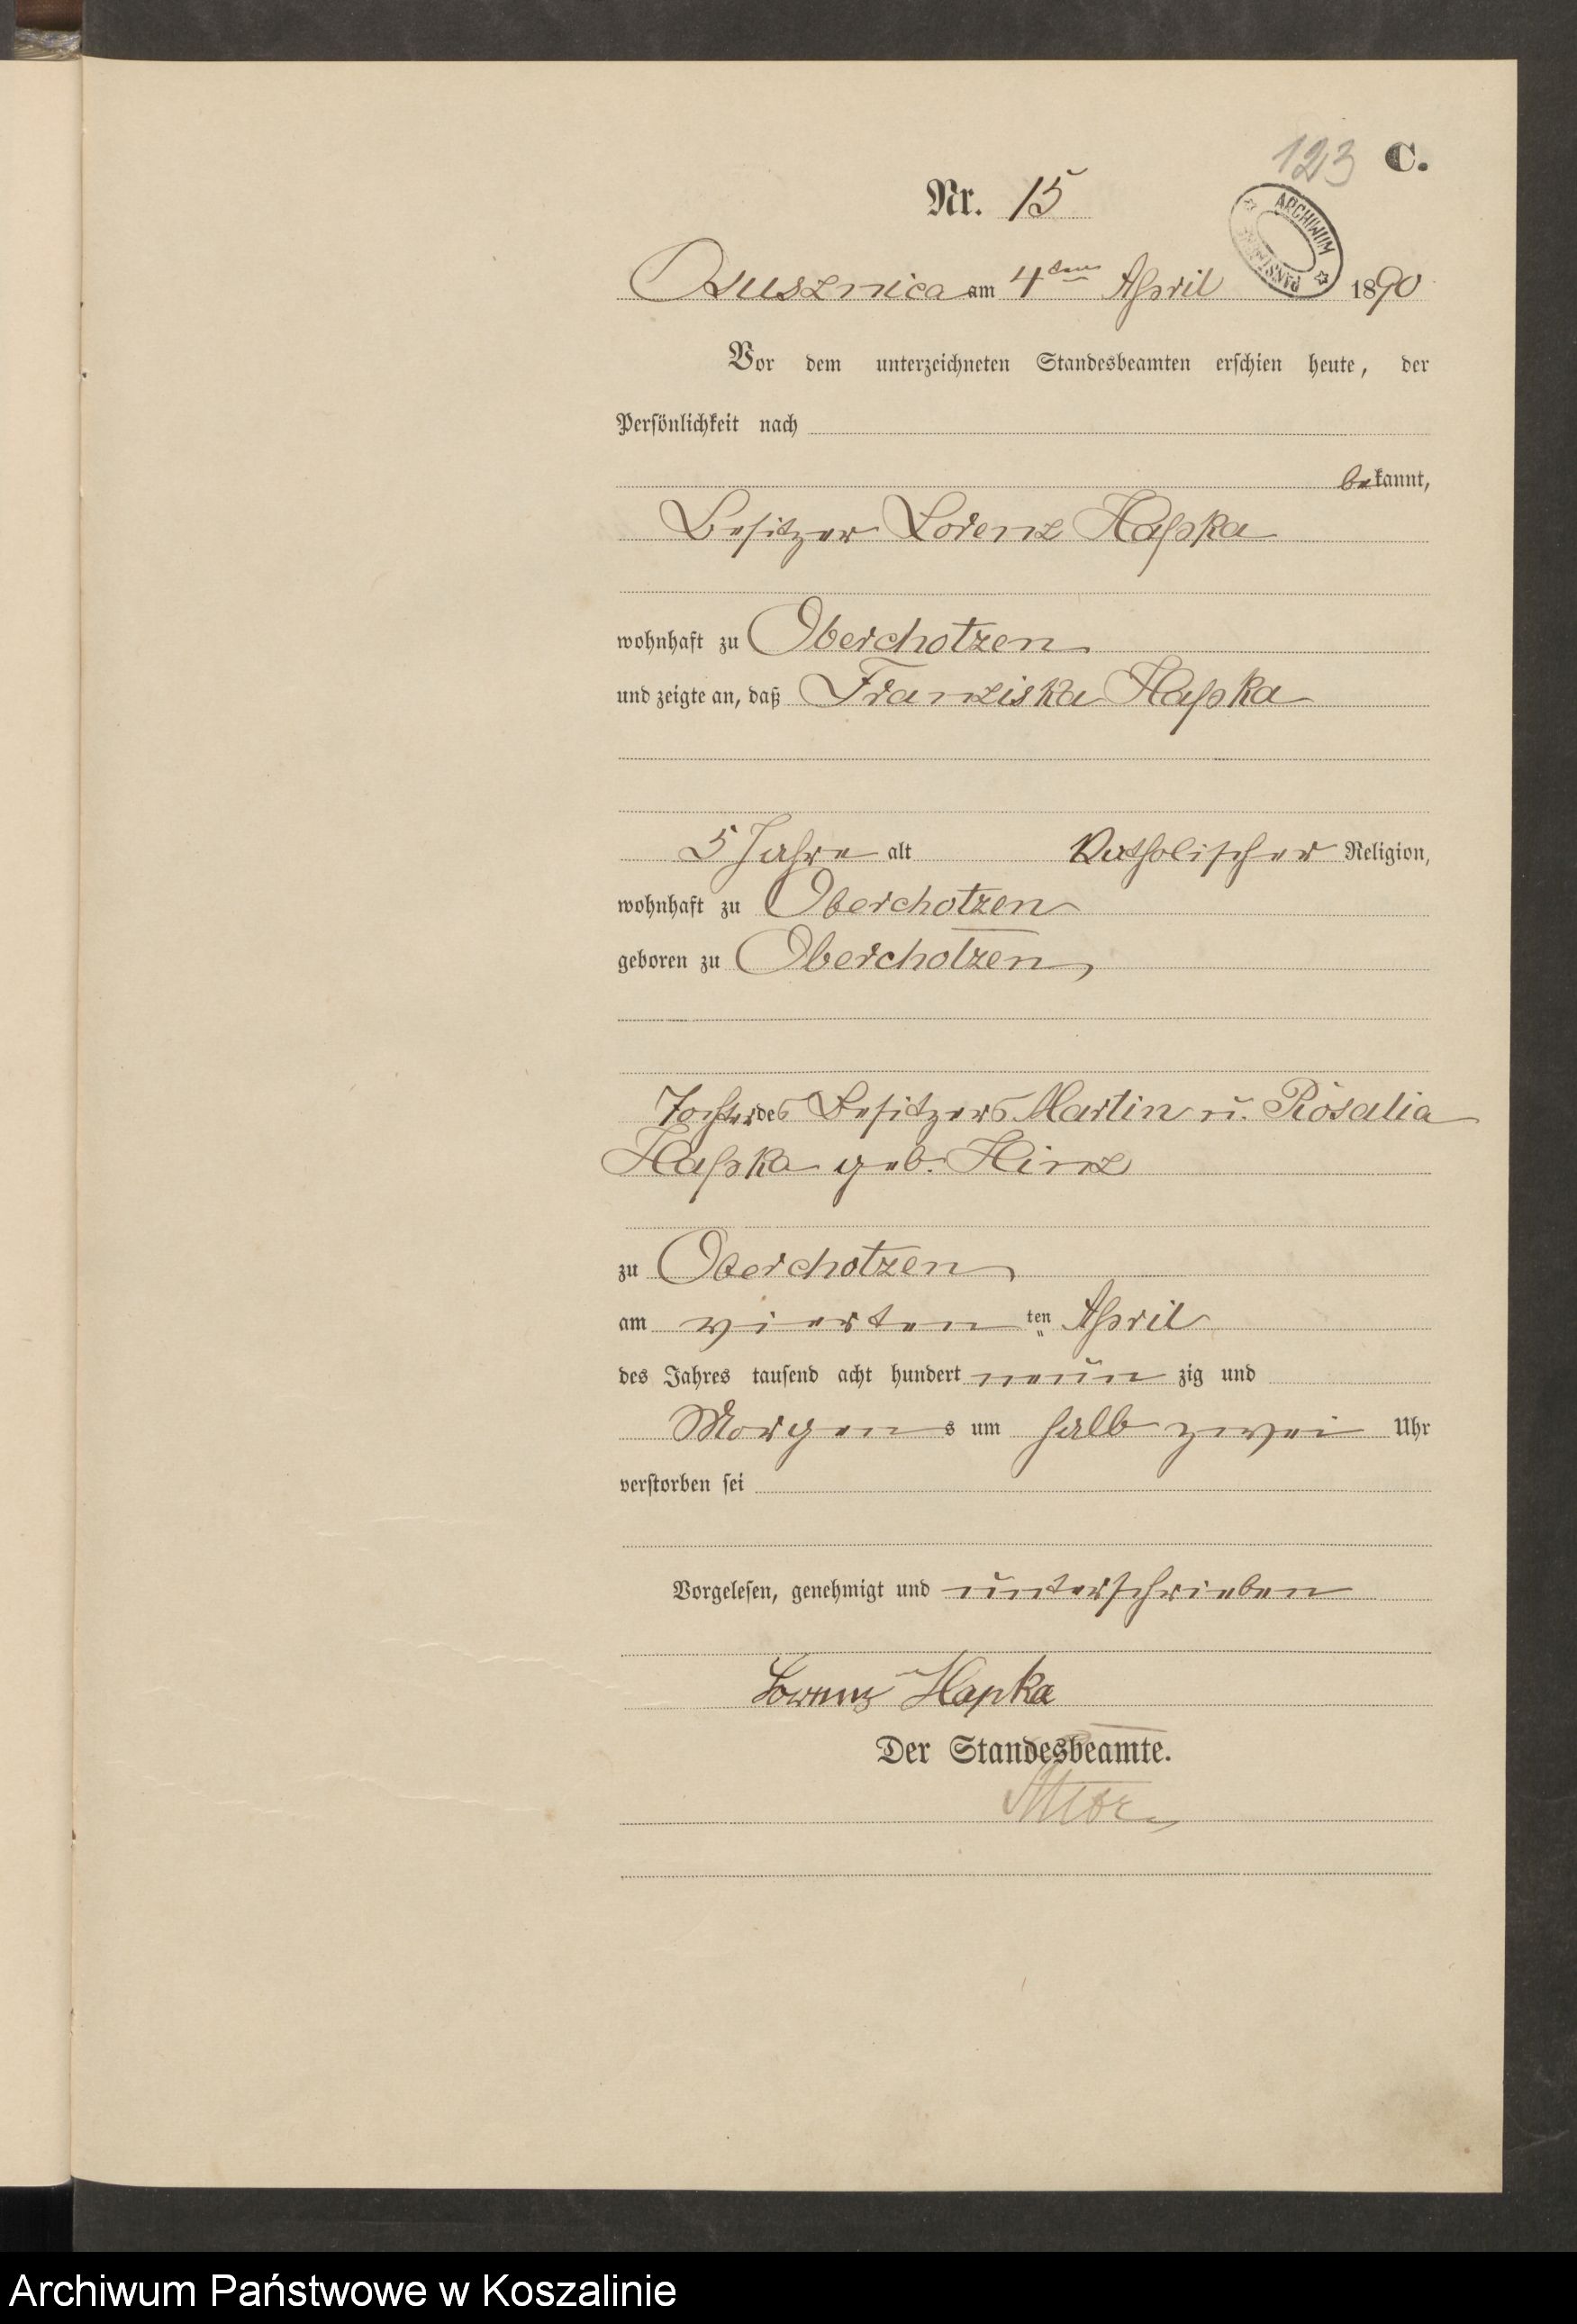 123 C.
Nr. 15
ARCHIWUM PAŃSTWOWE
Ossusznica am 4ten April 1890
Vor dem unterzeichneten Standesbeamten erschien heute, der
Persönlichkeit nach
bekannt,
Besitzer Lorenz Hapka
wohnhaft zu Oberchotzen
und zeigte an, daß Franziska Hapka
5 Jahre alt Katholischer Religion,
wohnhaft zu Oberchotzen
geboren zu Oberchotzen,
Tochter des Besitzers Martin u. Rosalia
Hapka geb. Hinz
zu Oberchotzen
am vierten ten April
des Jahres tausend acht hundert neun zig und
Morgens um halb zwei Uhr
verstorben sei
Vorgelesen, genehmigt und unterschrieben
Lorenz Hapka
Der Standesbeamte.
Archiwum Państwowe w Koszalinie